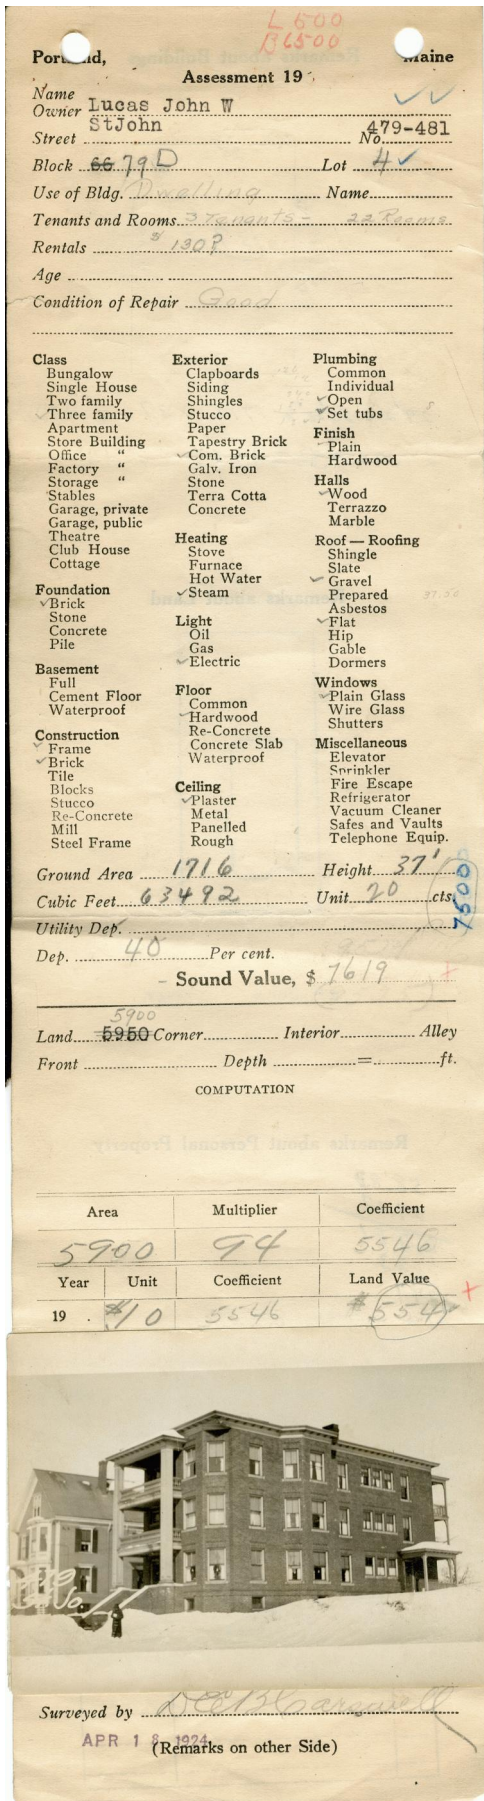 L 500
B 6500
Portland, Maine
Assessment 19
Name
Owner Lucas John W
Street St John No. 479-481
Block 66 79 D Lot 4
Use of Bldg. Dwelling Name
Tenants and Rooms 3 Tenants - 22 Rooms
Rentals $ 130?
Age
Condition of Repair Good
Class
Bungalow
Single House
Two family
Three family
Apartment
Store Building
Office "
Factory "
Storage "
Stables
Garage, private
Garage, public
Theatre
Club House
Cottage
Foundation
Brick
Stone
Concrete
Pile
Basement
Full
Cement Floor
Waterproof
Construction
Frame
Brick
Tile
Blocks
Stucco
Re-Concrete
Mill
Steel Frame
Exterior
Clapboards
Siding
Shingles
Stucco
Paper
Tapestry Brick
Com. Brick
Galv. Iron
Stone
Terra Cotta
Concrete
Heating
Stove
Furnace
Hot Water
Steam
Light
Oil
Gas
Electric
Floor
Common
Hardwood
Re-Concrete
Concrete Slab
Waterproof
Ceiling
Plaster
Metal
Panelled
Rough
Plumbing
Common
Individual
Open
Set tubs
Finish
Plain
Hardwood
Halls
Wood
Terrazzo
Marble
Roof — Roofing
Shingle
Slate
Gravel
Prepared
Asbestos
Flat
Hip
Gable
Dormers
Windows
Plain Glass
Wire Glass
Shutters
Miscellaneous
Elevator
Sprinkler
Fire Escape
Refrigerator
Vacuum Cleaner
Safes and Vaults
Telephone Equip.
37.50
Ground Area 1716 Height 37'
Cubic Feet 63492 Unit 20 cts.
7500
Utility Dep.
Dep. 40 Per cent.
Sound Value, $ 7619
5900
Land 5950 Corner Interior Alley
Front Depth = ft.
COMPUTATION
Area Multiplier Coefficient
5900 94 5546
Year Unit Coefficient Land Value
19 . $10 5546 $554
Surveyed by
APR 18 1924
(Remarks on other Side)